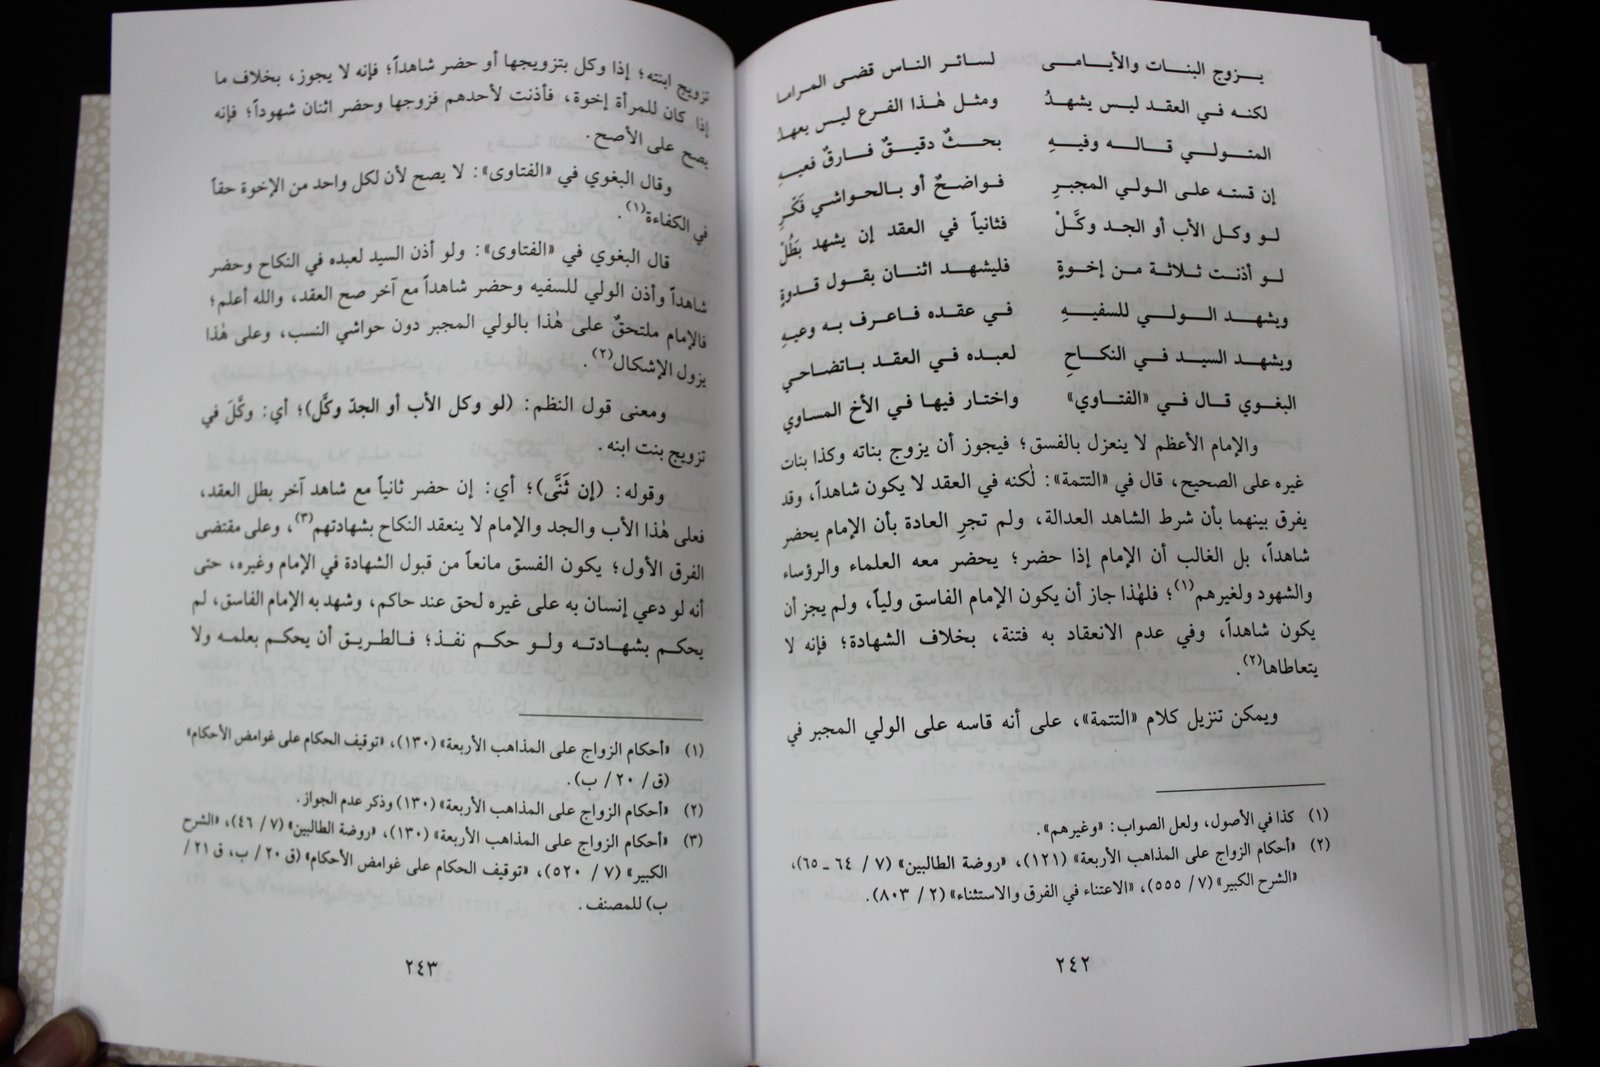 يـزوج البنـات والأيـامـى لسـائـر النـاس قضـى المـرامـا
لكنـه فـي العقـد ليـس يشهـدُ ومثـل هٰـذا الفـرع ليـس يعهـدُ
المتـولـي قـالـه وفيـهِ بحـثٌ دقيـقٌ فـارقٌ فعيـهِ
إن قستـه علـى الـولـي المجبـرِ فـواضـحٌ أو بـالحـواشـي فَكِّـرِ
لـو وكـل الأب أو الجـد وكَّـلْ فثـانيـاً فـي العقـد إن يشهـد بَطُلْ
لـو أذنـت ثـلاثـة مـن إخـوةٍ فليشهـد اثنـان بقـول قـدوةٍ
ويشهـد الـولـي للسفيـهِ فـي عقـده فـاعـرف بـه وعيـهِ
ويشهـد السيـد فـي النكـاحِ لعبـده فـي العقـد بـاتضـاحـي
البغـوي قـال فـي «الفتـاوي» واختـار فيهـا فـي الأخ المسـاوي
والإمام الأعظم لا ينعزل بالفسق؛ فيجوز أن يزوج بناته وكذا بنات
غيره على الصحيح، قال في «التتمة»: لٰكنه في العقد لا يكون شاهداً، وقد
يفرق بينهما بأن شرط الشاهد العدالة، ولم تجرِ العادة بأن الإمام يحضر
شاهداً، بل الغالب أن الإمام إذا حضر؛ يحضر معه العلماء والرؤساء
والشهود ولغيرهم(١)؛ فلهٰذا جاز أن يكون الإمام الفاسق ولياً، ولم يجز أن
يكون شاهداً، وفي عدم الانعقاد به فتنة، بخلاف الشهادة؛ فإنه لا
يتعاطاها(٢).
ويمكن تنزيل كلام «التتمة»، على أنه قاسه على الولي المجبر في
(١) كذا في الأصول، ولعل الصواب: «وغيرهم».
(٢) «أحكام الزواج على المذاهب الأربعة» (١٢١)، «روضة الطالبين» (٧/ ٦٤ ـ ٦٥)،
«الشرح الكبير» (٧/ ٥٥٥)، «الاعتناء في الفرق والاستثناء» (٢/ ٨٠٣).
٢٤٢
تزويج ابنته؛ إذا وكل بتزويجها أو حضر شاهداً؛ فإنه لا يجوز، بخلاف ما
إذا كان للمرأة إخوة، فأذنت لأحدهم فزوجها وحضر اثنان شهوداً؛ فإنه
يصح على الأصح.
وقال البغوي في «الفتاوى»: لا يصح لأن لكل واحد من الإخوة حقاً
في الكفاءة(١).
قال البغوي في «الفتاوى»: ولو أذن السيد لعبده في النكاح وحضر
شاهداً وأذن الولي للسفيه وحضر شاهداً مع آخر صح العقد، والله أعلم؛
فالإمام ملتحقٌ على هٰذا بالولي المجبر دون حواشي النسب، وعلى هٰذا
يزول الإشكال(٢).
ومعنى قول النظم: (لو وكل الأب أو الجدّ وكَّل)؛ أي: وكَّلَ في
تزويج بنت ابنه.
وقوله: (إن ثَنَّى)؛ أي: إن حضر ثانياً مع شاهد آخر بطل العقد،
فعلى هٰذا الأب والجد والإمام لا ينعقد النكاح بشهادتهم(٣)، وعلى مقتضى
الفرق الأول؛ يكون الفسق مانعاً من قبول الشهادة في الإمام وغيره، حتى
أنه لو دعي إنسان به على غيره لحق عند حاكم، وشهد به الإمام الفاسق، لم
يحكـم بشهـادتـه ولـو حكـم نفـذ؛ فـالطـريـق أن يحكـم بعلمـه ولا
(١) «أحكام الزواج على المذاهب الأربعة» (١٣٠)، «توقيف الحكام على غوامض الأحكام»
(ق/ ٢٠/ ب).
(٢) «أحكام الزواج على المذاهب الأربعة» (١٣٠) وذكر عدم الجواز.
(٣) «أحكام الزواج على المذاهب الأربعة» (١٣٠)، «روضة الطالبين» (٧/ ٤٦)، «الشرح
الكبير» (٧/ ٥٢٠)، «توقيف الحكام على غوامض الأحكام» (ق ٢٠/ ب، ق ٢١/
ب) للمصنف.
٢٤٣